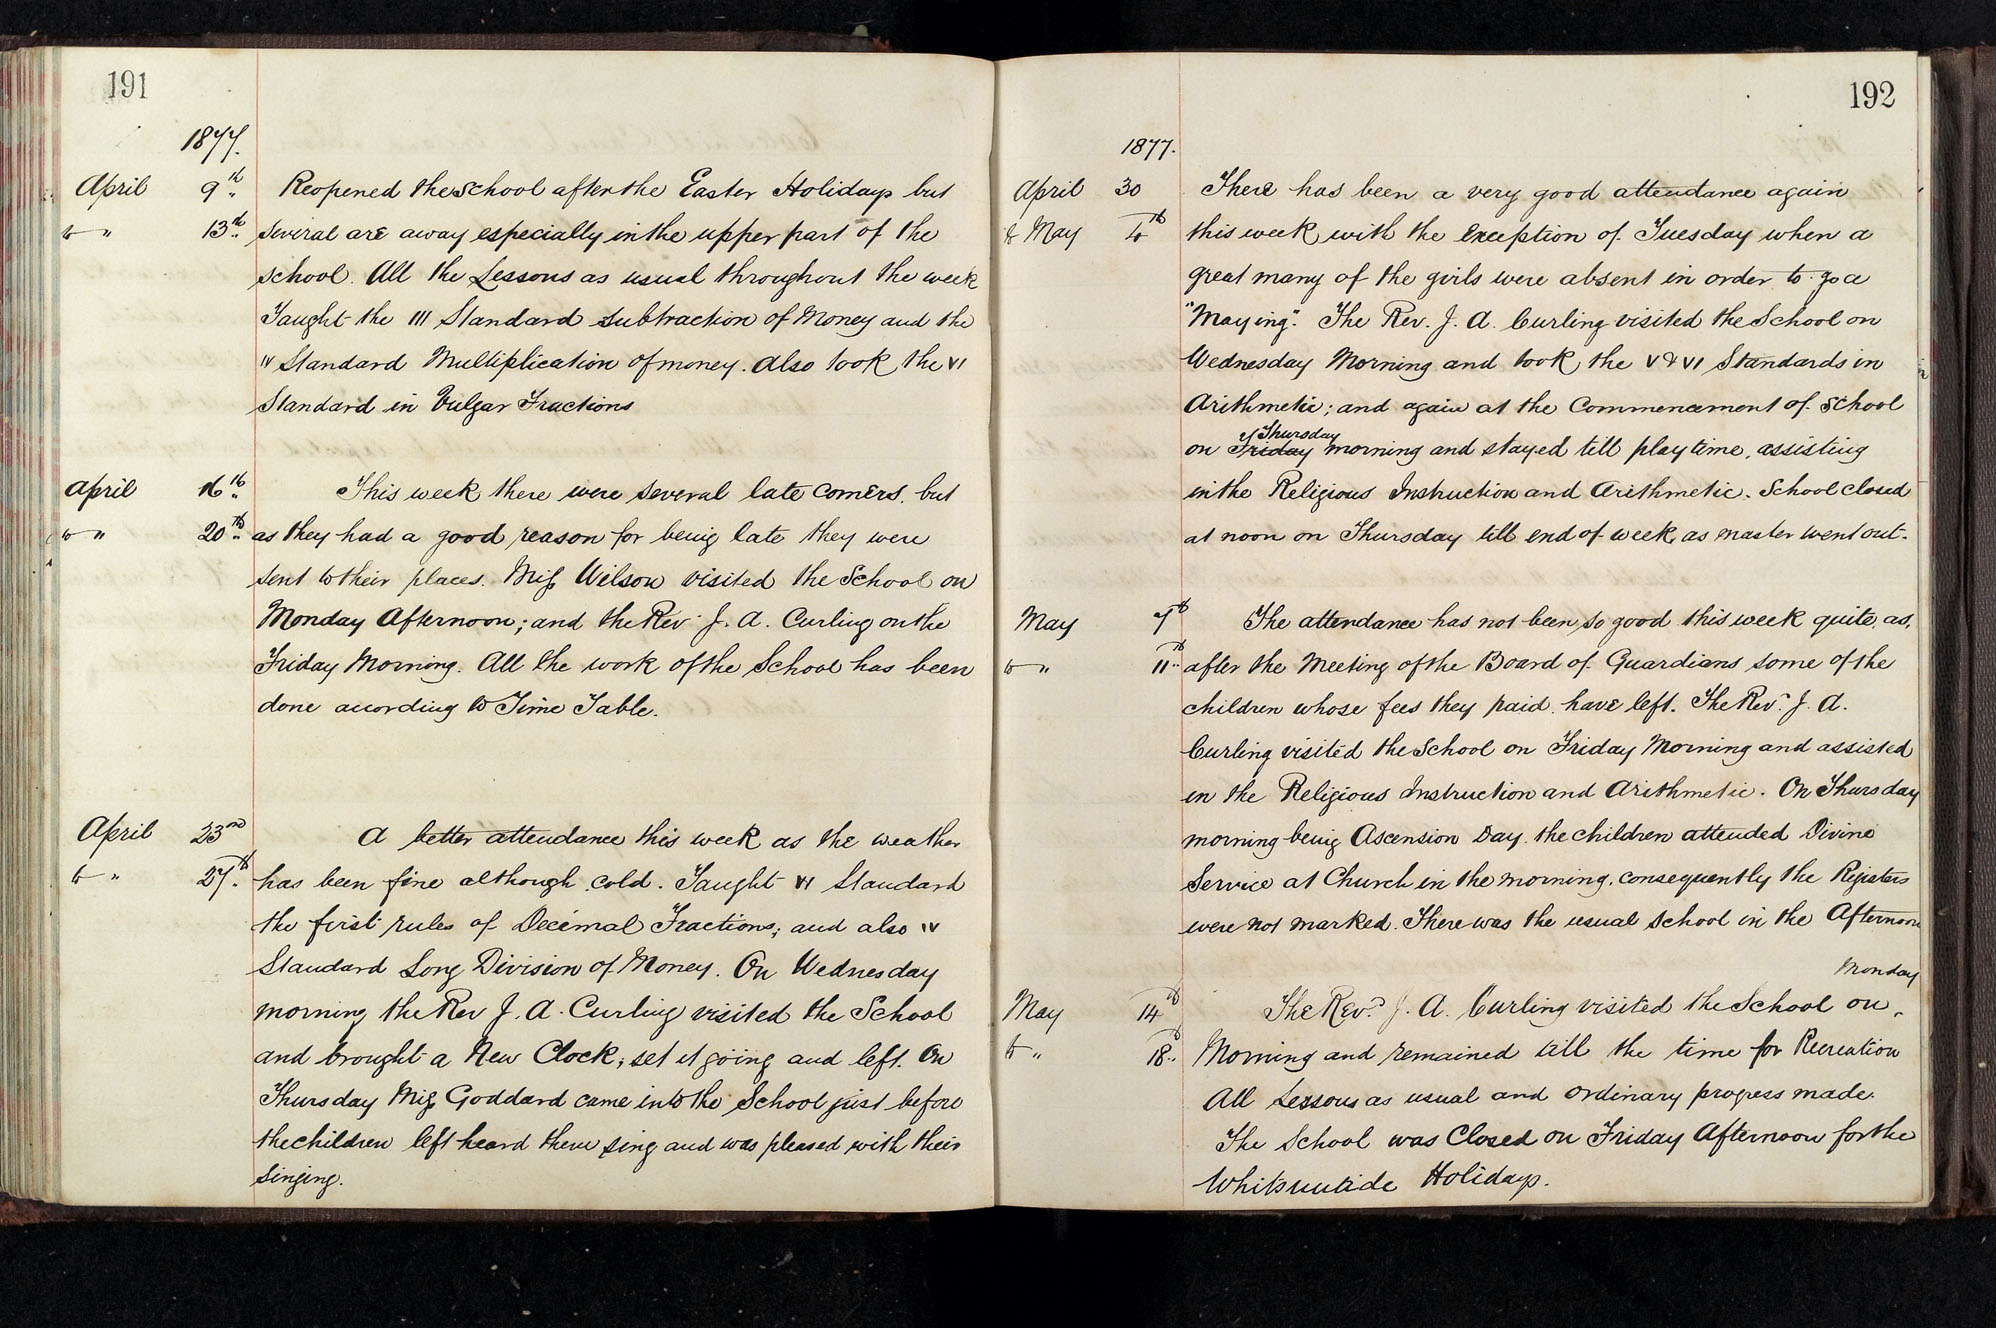 191
1877.
April 9th Reopened the School after the Easter Holidays but
to " 13th several are away especially in the upper part of the
school. All the Lessons as usual throughout the week
Taught the III Standard Subtraction of Money and the
IV Standard Multiplication of money. Also took the VI
Standard in Vulgar Fractions
April 16th This week there were several late comers. but
to " 20th as they had a good reason for being late they were
sent to their places. Miss Wilson visited the School on
Monday Afternoon; and the Rev. J. A. Curling on the
Friday Morning. All the work of the School has been
done according to Time Table.
April 23rd A better attendance this week as the weather
to " 27th has been fine although cold. Taught VI Standard
the first rules of Decimal Fractions; and also IV
Standard Long Division of Money. On Wednesday
morning the Rev J. A. Curling visited the School
and brought a New Clock; set it going and left. On
Thursday Miss Goddard came into the School just before
the children left heard them sing and was pleased with their
singing.
192
1877.
April 30 There has been a very good attendance again
to May 4th this week with the exception of Tuesday when a
great many of the girls were absent in order to go a
"Maying". The Rev. J. A. Curling visited the School on
Wednesday Morning and took the V & VI Standards in
Arithmetic; and again at the Commencement of School
Thursday
on Friday morning and stayed till playtime, assisting
in the Religious Instruction and Arithmetic. School closed
at noon on Thursday till end of week, as master went out.
May 7th The attendance has not been so good this week quite, as,
to " 11th after the Meeting of the Board of Guardians some of the
children whose fees they paid have left. The Rev. J. A.
Curling visited the School on Friday Morning and assisted
in the Religious Instruction and Arithmetic. On Thursday
morning being Ascension Day the children attended Divine
Service at Church in the morning, consequently the Registers
were not marked. There was the usual school in the Afternoon
Monday
May 14th The Revd. J. A. Curling visited the School on
to " 18th Morning and remained till the time for Recreation
All Lessons as usual and ordinary progress made.
The School was Closed on Friday Afternoon for the
Whitsuntide Holidays.